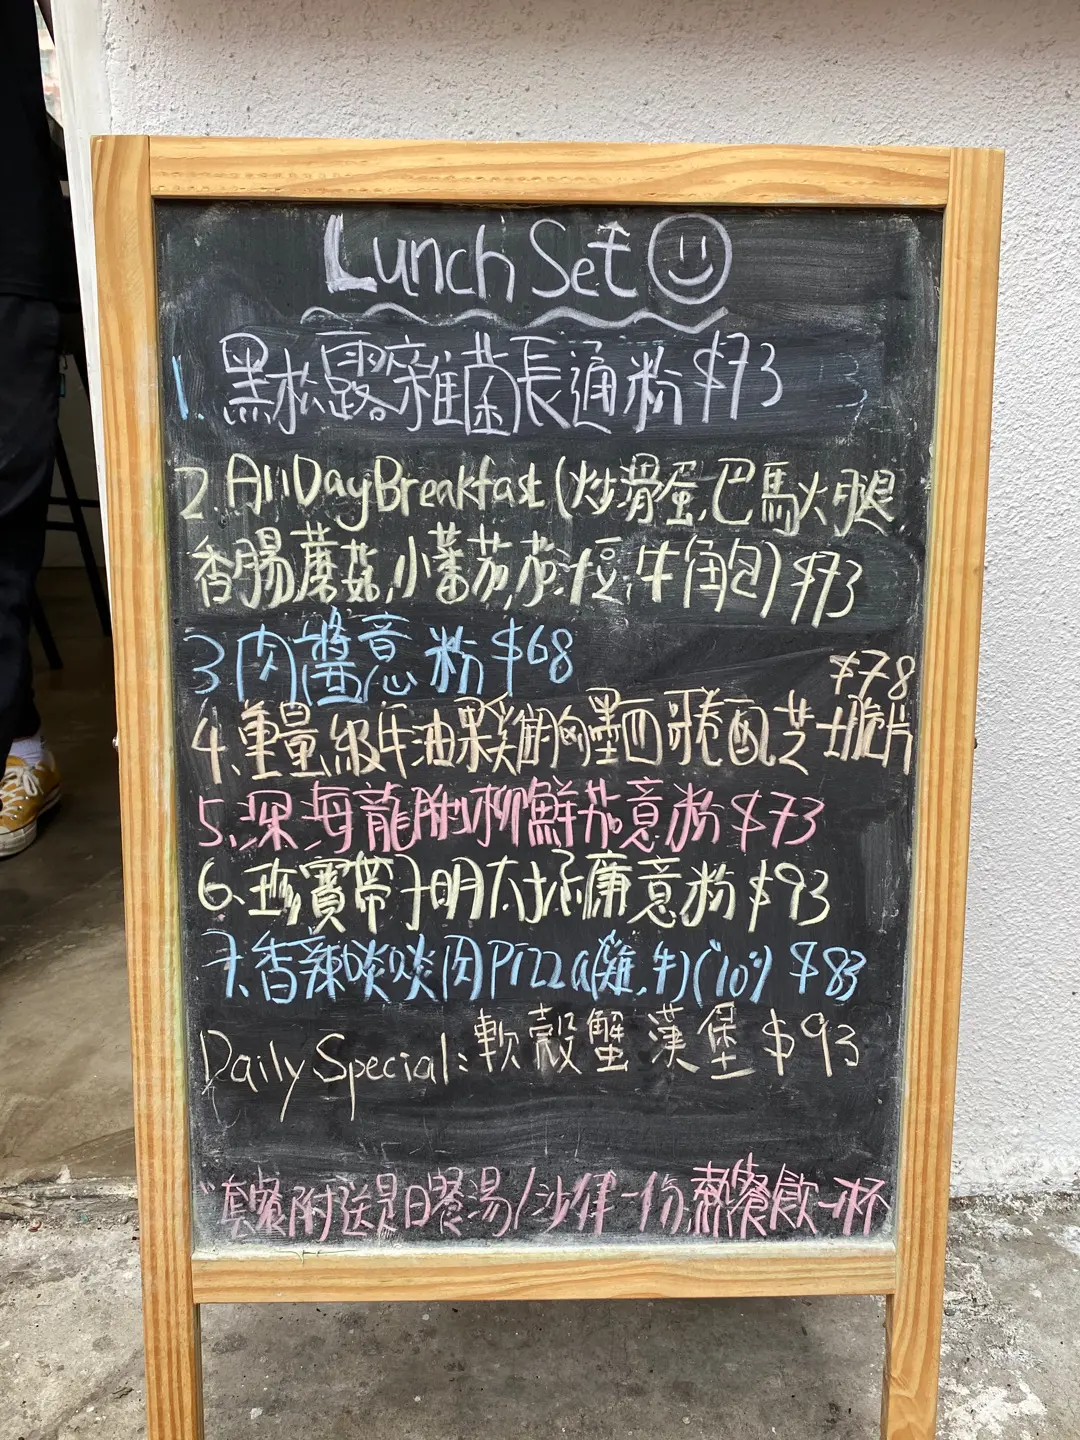 Lunch Set
1. 黑松露雜菌長通粉 $73
2. All Day Breakfast (炒滑蛋,巴馬火腿,
香腸蘑菇,小蕃茄,茄汁豆,牛角包) $73
3 肉醬意粉 $68
$78
4. 重量級牛油果雞胸墨西哥卷配芝士脆片
5. 深海龍脷柳鮮茄意粉 $73
6. 珍寶帶子明太子忌廉意粉 $93
7. 香辣啖啖肉Pizza(雞,牛)(10") $83
Daily Special: 軟殼蟹漢堡 $93
"套餐附送是日餐湯/沙律一份,熱餐飲一杯